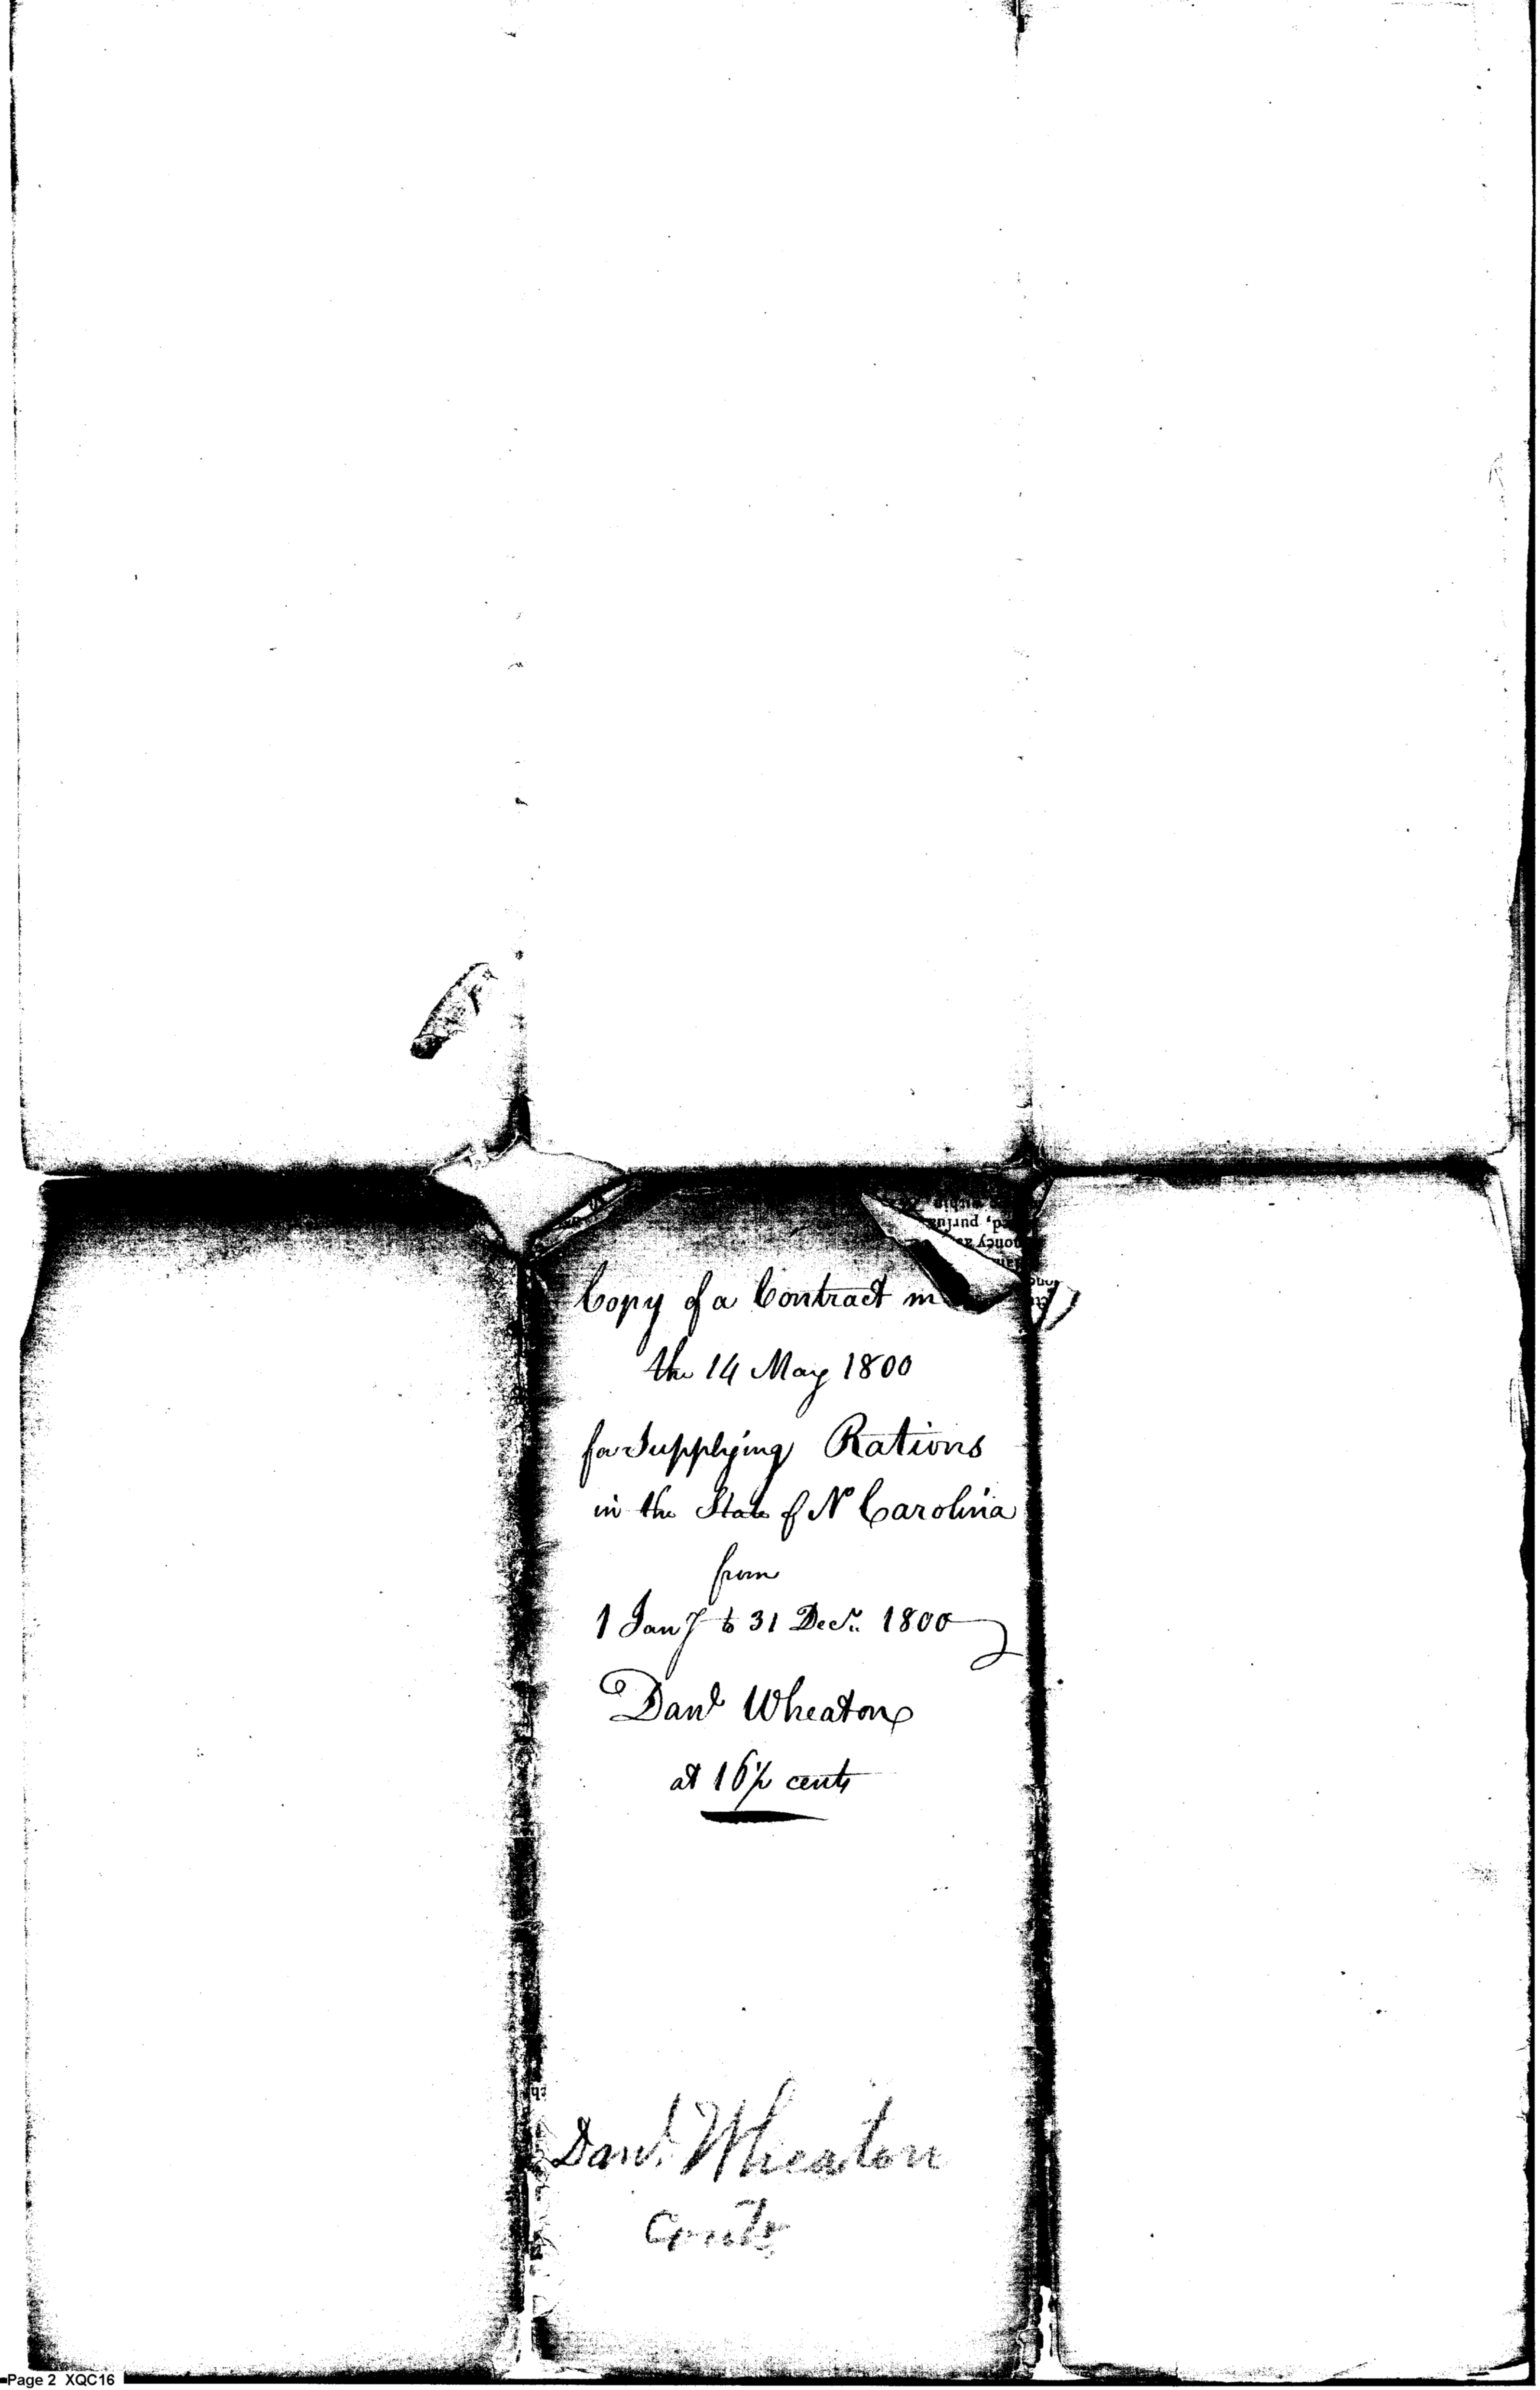 Copy of a Contract m
the 14 May 1800
for Supplying Rations
in the State of N Carolina
from
1 Jany to 31 Decr. 1800
Danl Wheaton
at 16½ cents
Danl. Wheaton
Page 2 XQC16